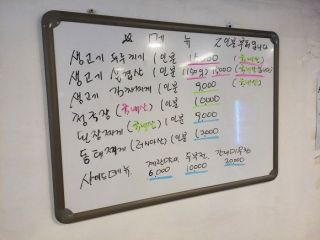 메뉴 2인분 부터됩니다
생고기 두루치기 1인분 (국내산)
생고기 삼겹살 1인분 15000 (국내산)
생고기 김치찌개 1인분 9000 (국내산)
청국장 (국내산) 1인분 10000
된장찌개 (국내산) 1인분 9000
동태찌개 (러시아산) 1인분
사이드메뉴 계란말이 두부전
6,000 10000 20000